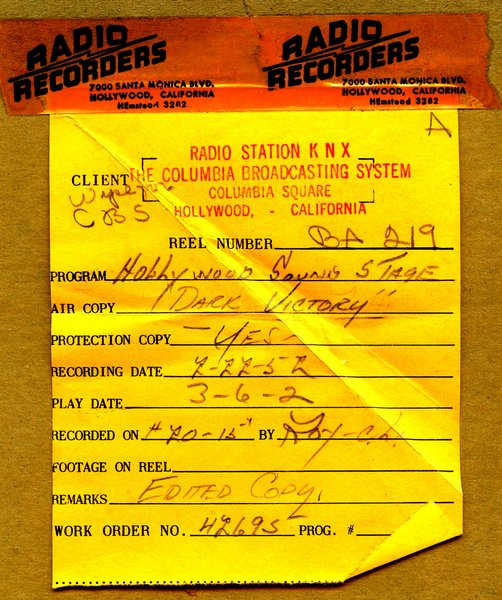 RADIO RECORDERS
7000 SANTA MONICA BLVD,
HOLLYWOOD, CALIFORNIA
HEmstead 3282
RADIO RECORDERS
7000 SANTA MONICA BLVD,
HOLLYWOOD, CALIFORNIA
HEmstead 3282
A
RADIO STATION KNX
CLIENT THE COLUMBIA BROADCASTING SYSTEM
CBS COLUMBIA SQUARE
HOLLYWOOD, - CALIFORNIA
REEL NUMBER BA 219
PROGRAM HOLLYWOOD SOUND STAGE
AIR COPY "DARK VICTORY"
PROTECTION COPY - YES -
RECORDING DATE 2-22-52
PLAY DATE 3-6-2
RECORDED ON # 20-15" BY
FOOTAGE ON REEL
REMARKS EDITED COPY.
WORK ORDER NO. 42695 PROG. #